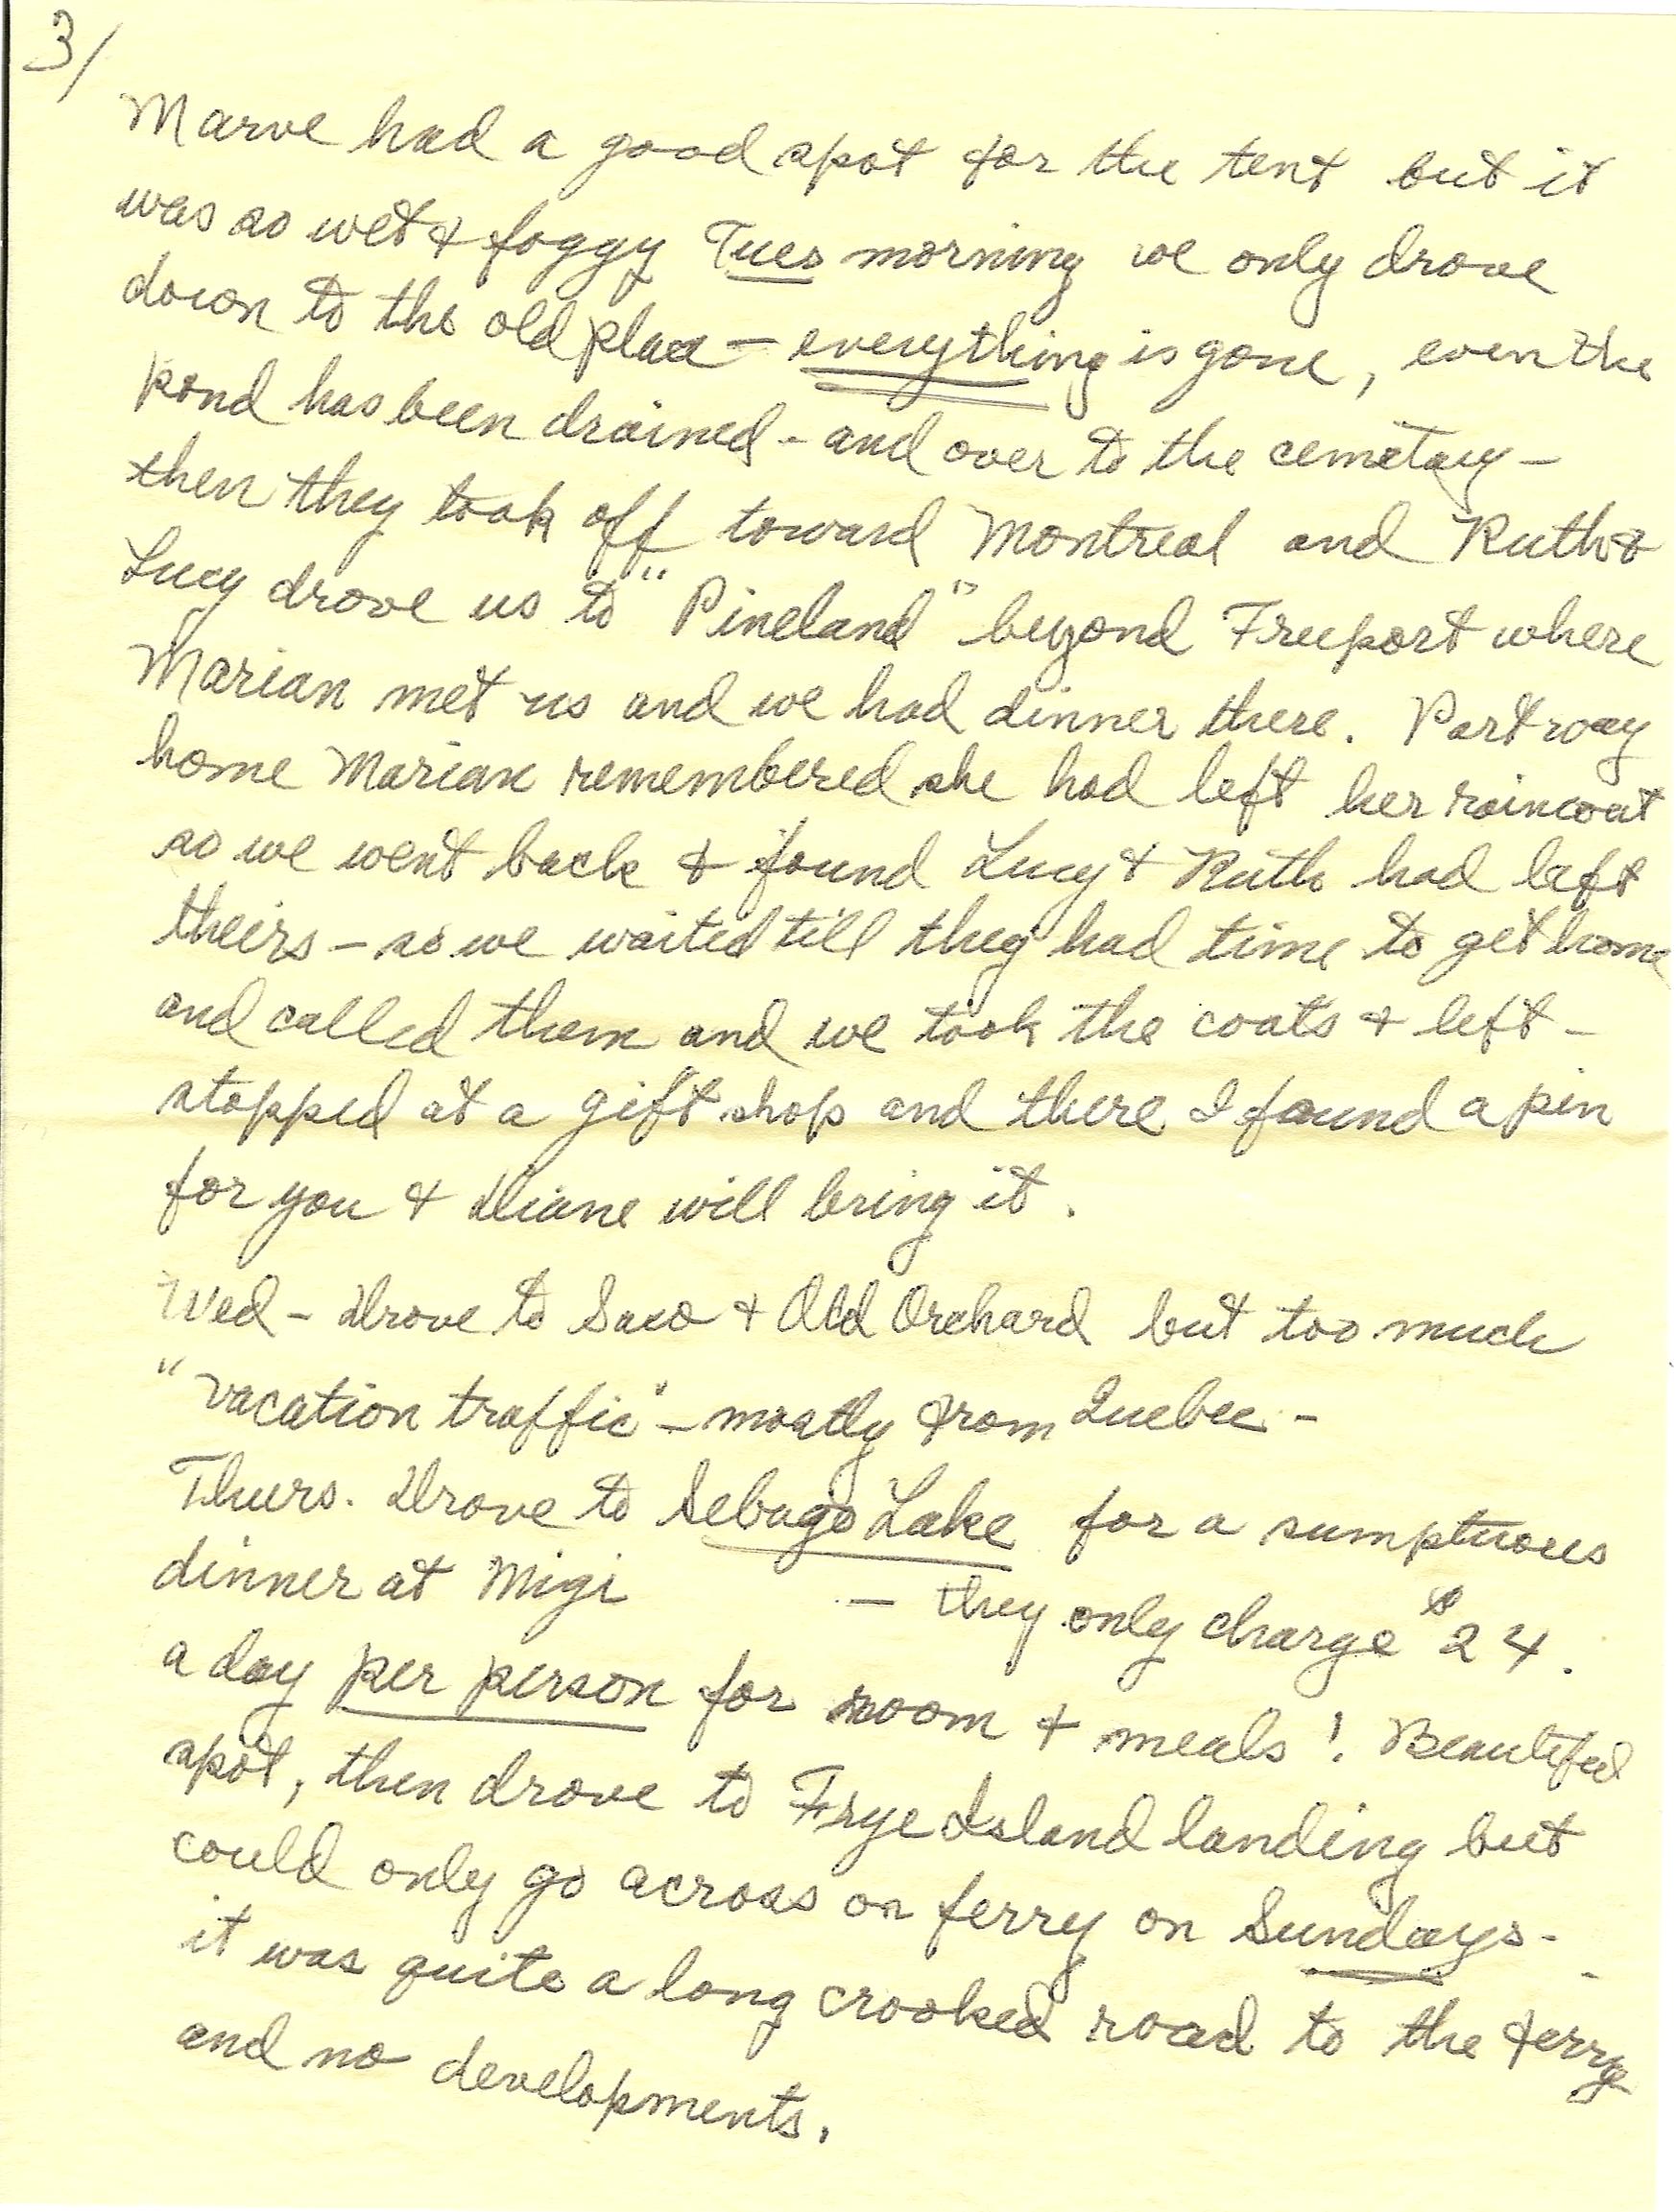 3/
Marve had a good spot for the tent but it
was so wet & foggy Tues morning we only drove
down to the old place - everything is gone, even the
pond has been drained - and over to the cemetary -
then they took off toward Montreal and Ruth &
Lucy drove us to "Pineland" beyond Freeport where
Marian met us and we had dinner there. Part way
home Marian remembered she had left her raincoat
so we went back & found Lucy & Ruth had left
theirs - so we waited till they had time to get home
and called them and we took the coats & left -
stopped at a gift shop and there I found a pin
for you & Diane will bring it.
Wed - Drove to Saco & Old Orchard but too much
"vacation traffic" - mostly from Quebec -
Thurs. Drove to Sebago Lake for a sumptuous
dinner at Migi - they only charge $24.
a day per person for room & meals! Beautiful
spot, then drove to Frye Island landing but
could only go across on ferry on Sundays -
it was quite a long crooked road to the ferry
and no developments.